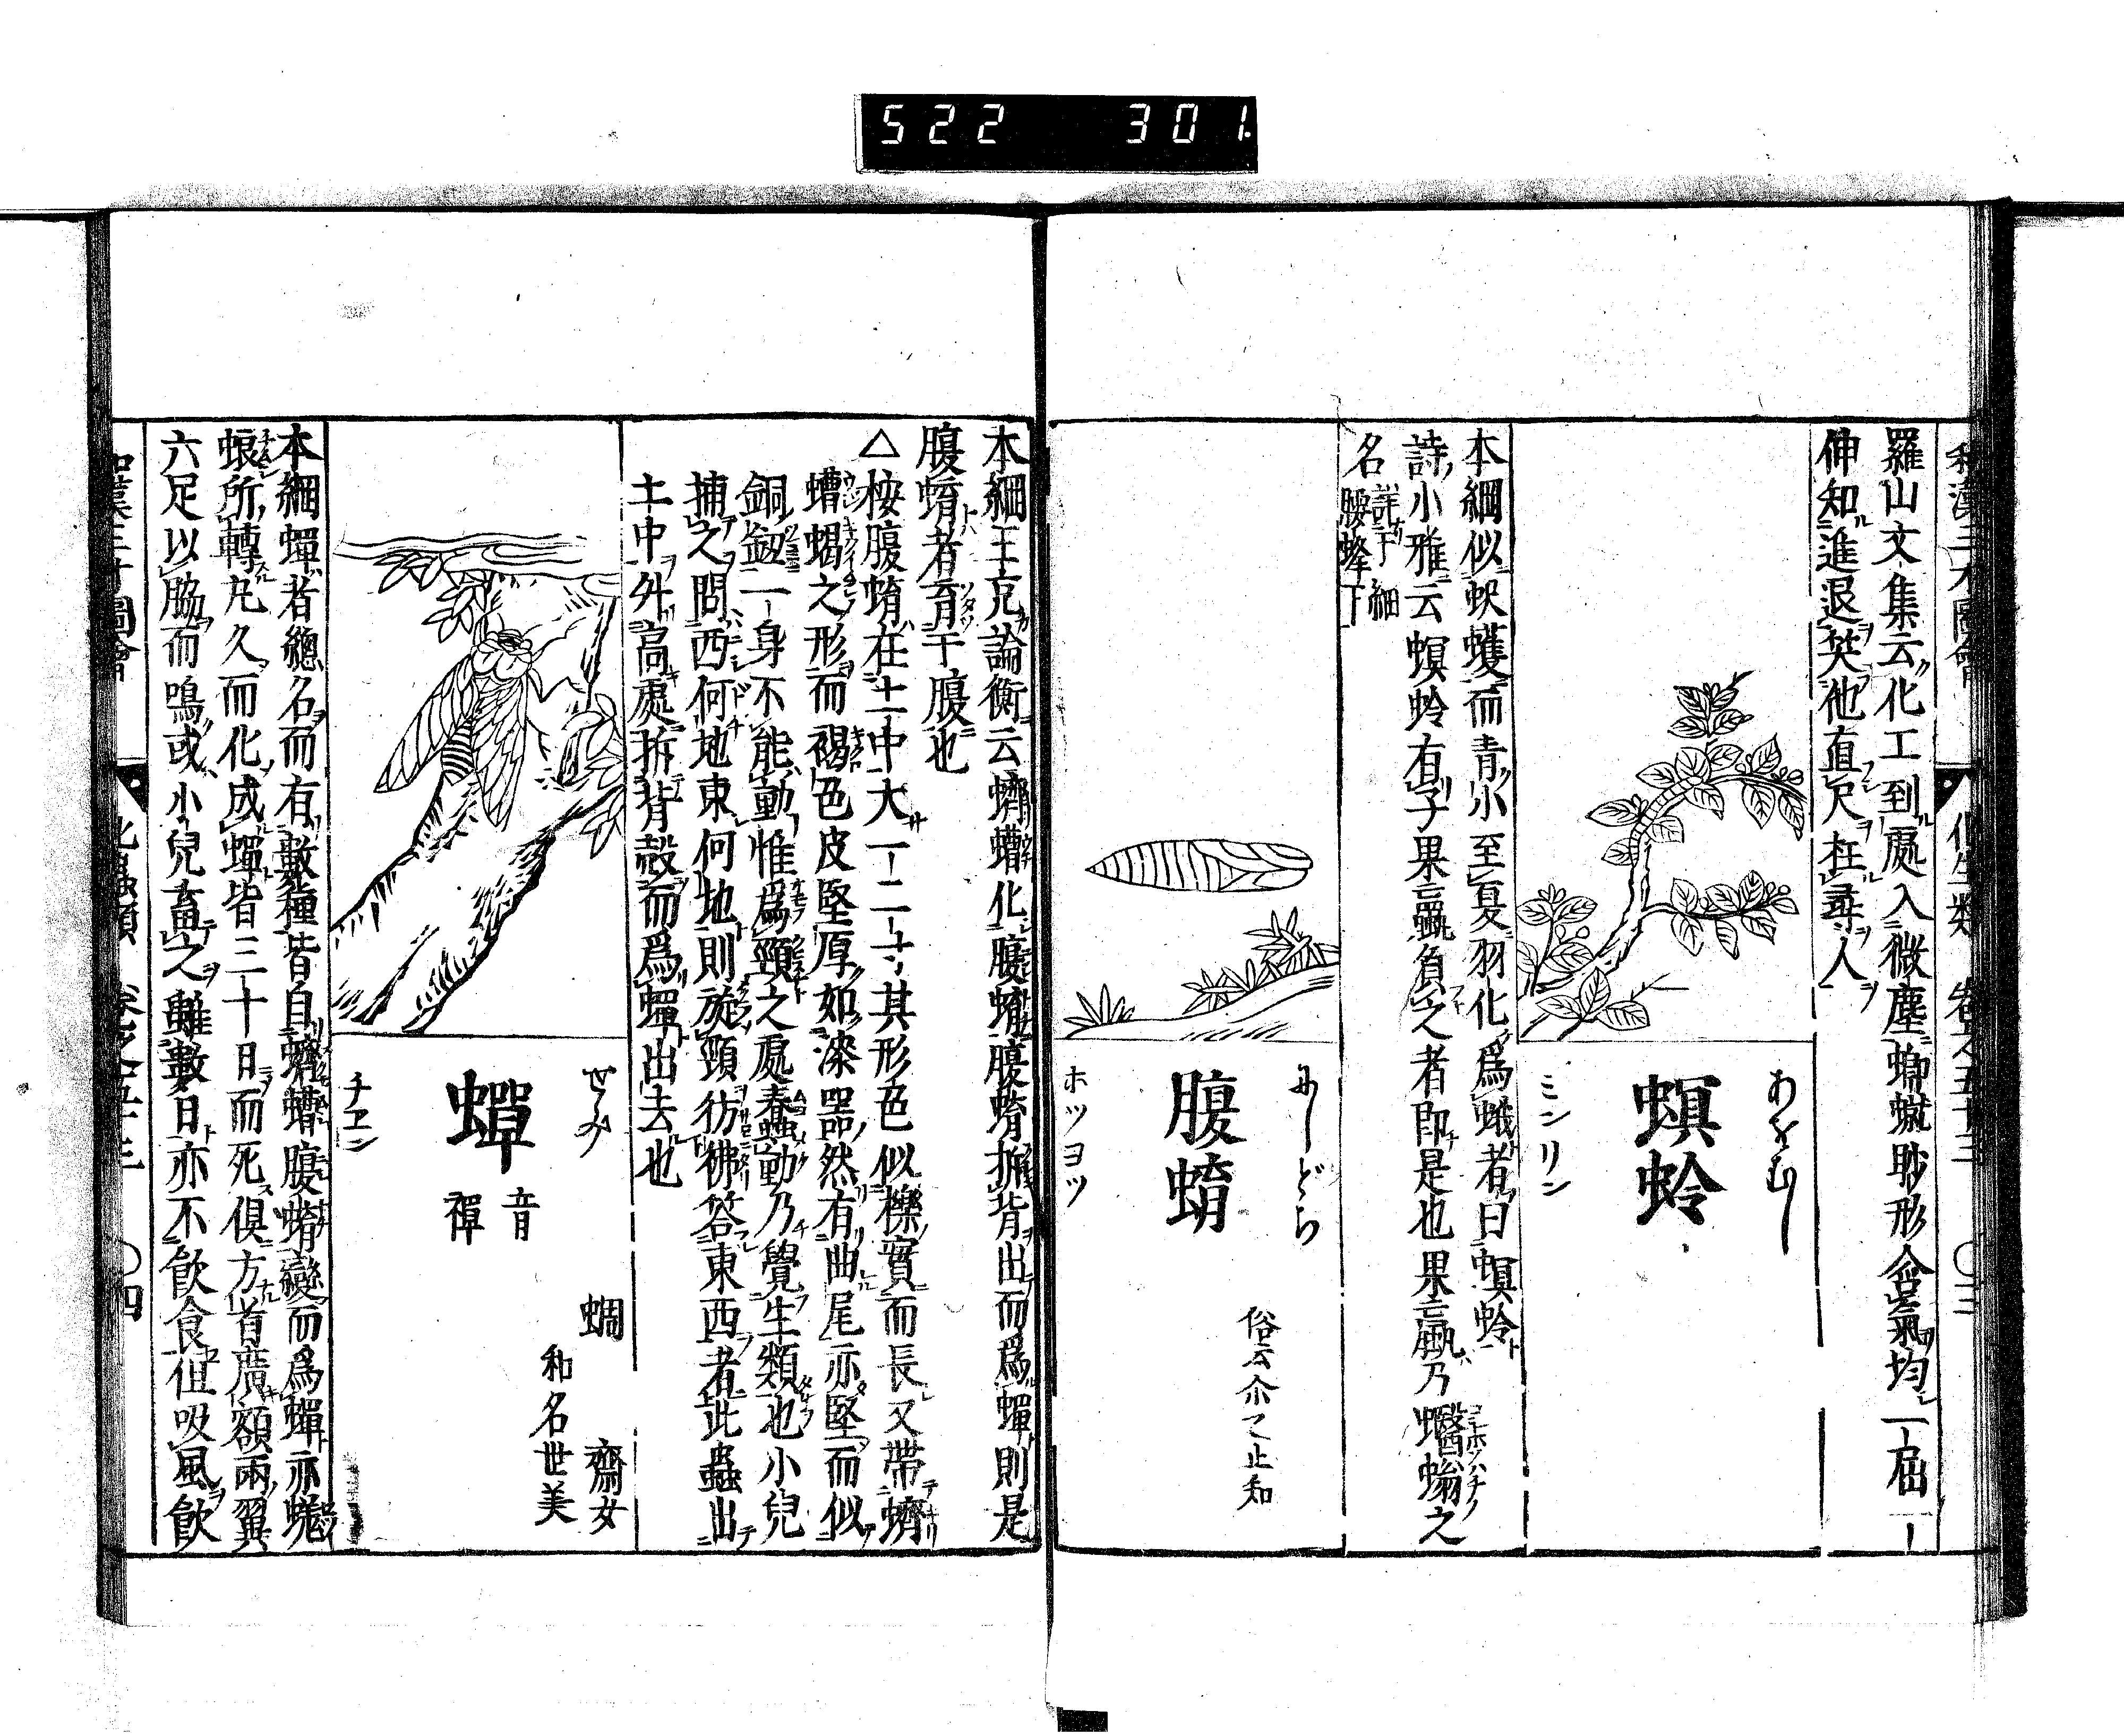 522 301
和漢三才圖會 化生類 卷之五十三 〇三
羅山文集云化工到處入微塵蝍䗥眇形含氣均一屈一
伸知進退笑他直尺枉尋人
あをむし
螟蛉
ミンリン
本綱似蚇蠖而青小至夏羽化爲蛾者曰螟蛉
詩小雅云螟蛉有子果蠃負之者即是也果蠃乃蠮螉之
名詳于細腰蜂下
にしどち
腹蜟
ホッヨッ
俗云尒之止知
本綱王充論衡云蠐螬化腹蜟腹蜟拆背出而爲蟬則是
腹蜟者育于腹也
△桉腹蜟在土中大一二寸其形色似櫟實而長又帶蠐
螬蝎之形而褐色皮堅厚如漆噐然有曲尾亦堅而似
銅
一身不能動惟爲頸之處蠢動乃覺生類也小兒
捕之問西何地東何地則旋頸彷彿答東西者此蟲出
土中外高處拆背殼而爲蟬出去也
せみ
蟬
音禪
チエン
蜩 齋女
和名世美
本綱蟬者總名而有數種皆自蠐螬腹蜟變而爲蟬亦蜣
蜋所轉凡久而化成蟬皆三十日而死俱方首廣額兩翼
六足以脇而鳴或小兒畜之雖數日亦不飮食但吸風飮
和漢三才圖會 化蟲類 卷之五十三 〇四